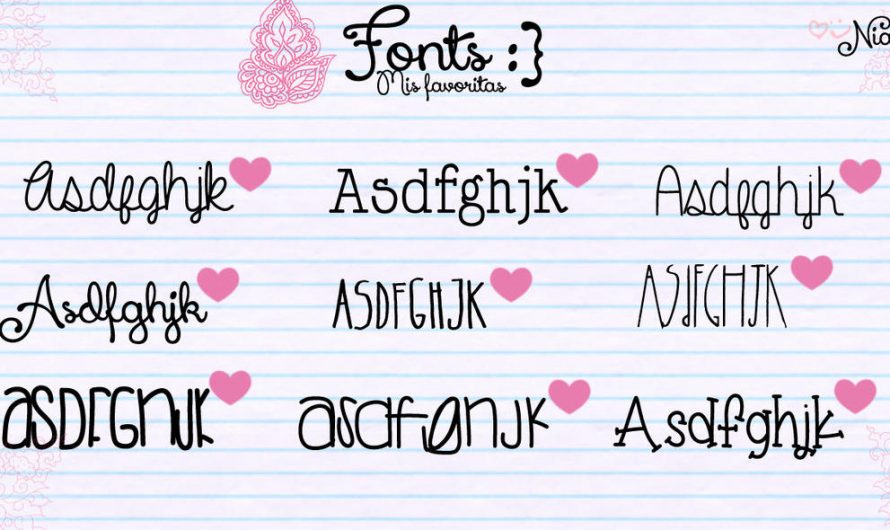 Fonts :}
Mis favoritas
Asdfghjk Asdfghjk Asdfghjk
Asdfghjk ASDFGHJK ASdFGHJK
aSDFGnJK asdfgnJK Asdfghjk